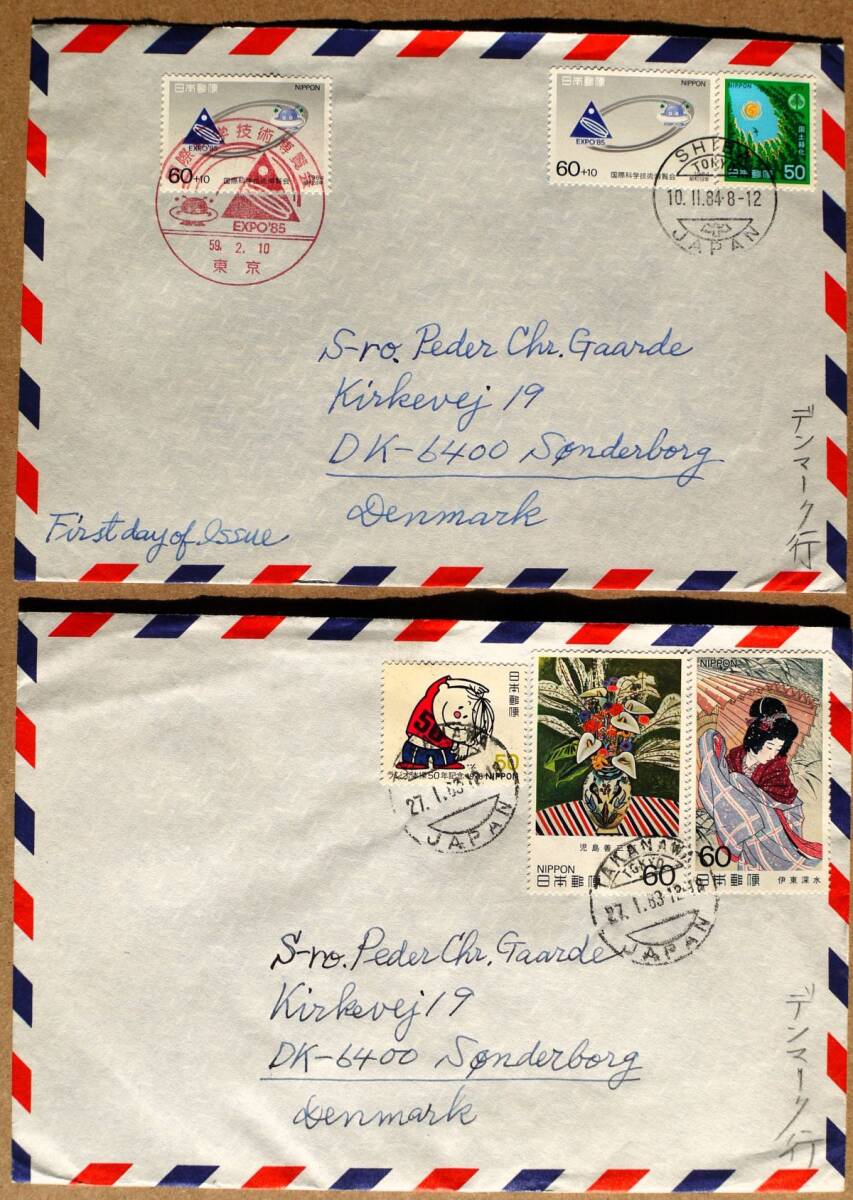 日本郵便 NIPPON
EXPO'85
60+10 国際科学技術博覧会
EXPO'85
59. 2. 10
東京
日本郵便 NIPPON
EXPO'85
60+10 国際科学技術博覧会
NIPPON
国土緑化
日本郵便 50
TOKYO
10. II. 84. 8-12
JAPAN
S-ro. Peder Chr. Gaarde
Kirkevej 19
DK-6400 Sønderborg
Denmark
デンマーク行
First day of Issue
日本郵便
50
50
50年記念 1978 NIPPON
27. I. 83
JAPAN
NIPPON
日本郵便 60
NIPPON
60
日本郵便 伊東深水
AKANAWA
TOKYO
27. I. 83. 12-18
JAPAN
S-ro. Peder Chr. Gaarde
Kirkevej 19
DK-6400 Sønderborg
Denmark
デンマーク行